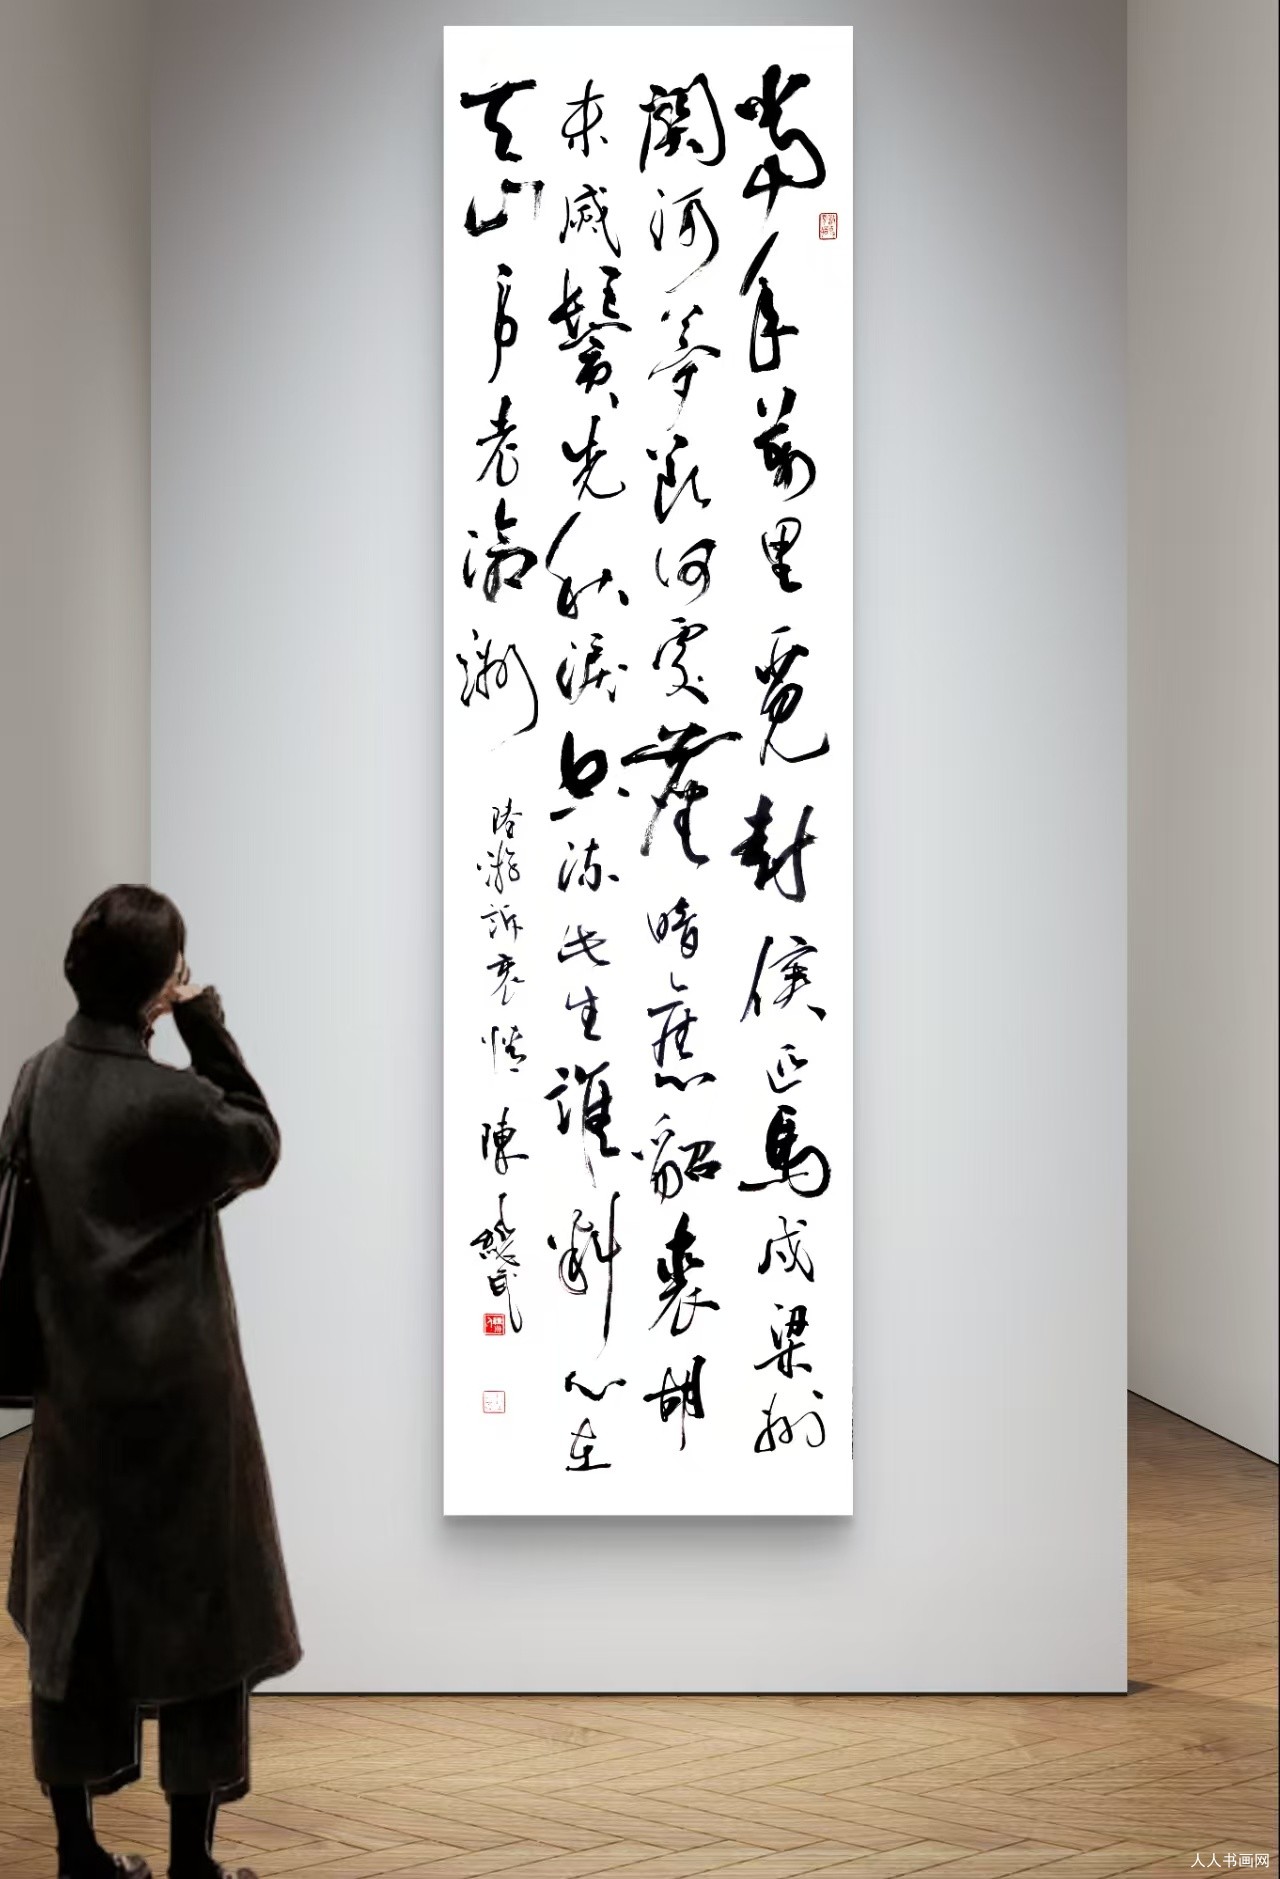 當年萬里覓封侯匹馬戍梁州
關河夢斷何處塵暗舊貂裘胡
未滅鬢先秋淚空流此生誰料心在
天山身老滄洲
陸游訴衷情 陳
人人书画网